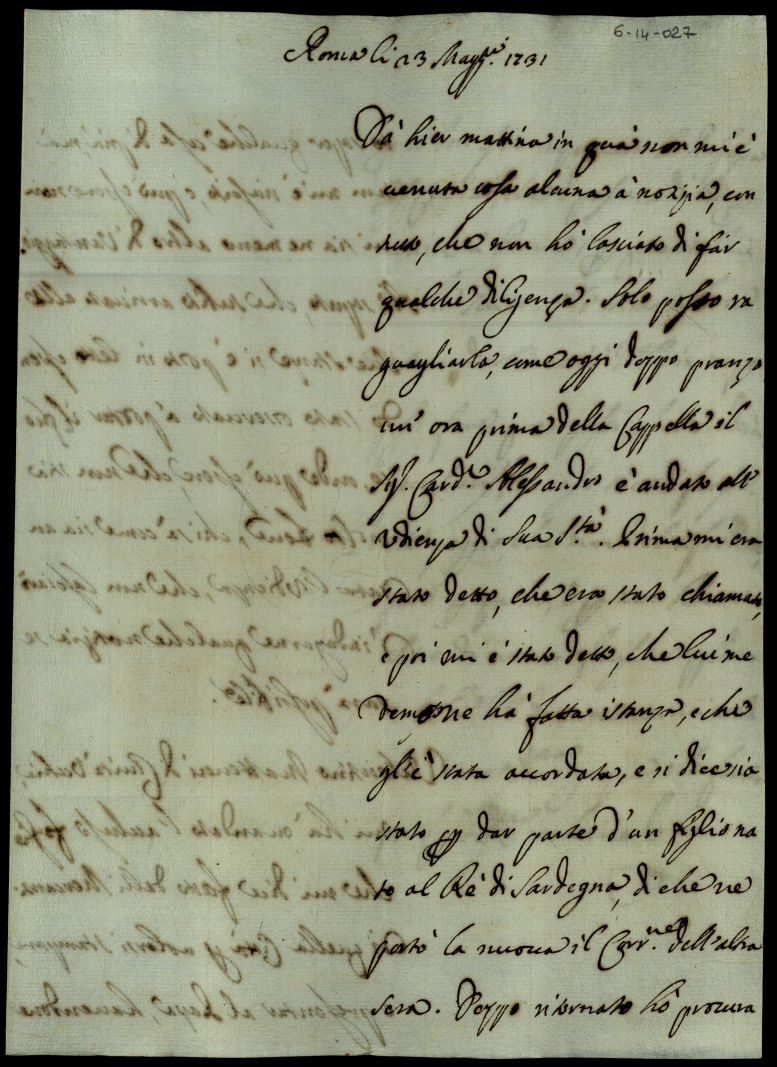 6-14-027
Roma li 23 Magg.º 1731
Dà hier mattina in quà non mi è
venuta cosa alcuna à notizia, con
tutto, che non hò lasciato di far
qualche diligenza. Solo posso ra
guagliarla, come oggi doppo pranzo
un' ora prima della Cappella il
Sig.r Card.e Alessandro è andato all'
Udienza di Sua S.tà. Prima mi era
stato detto, che era stato chiamato,
e poi mi è stato detto, che lui me
demo ne hà fatta istanza, e che
gli è stata accordata, e si dice sia
stato p dar parte d'un figlio na
to al Rè di Sardegna, di che ne
portò la nuova il Corr.re dell'altra
sera. Doppo ritornato hò procura